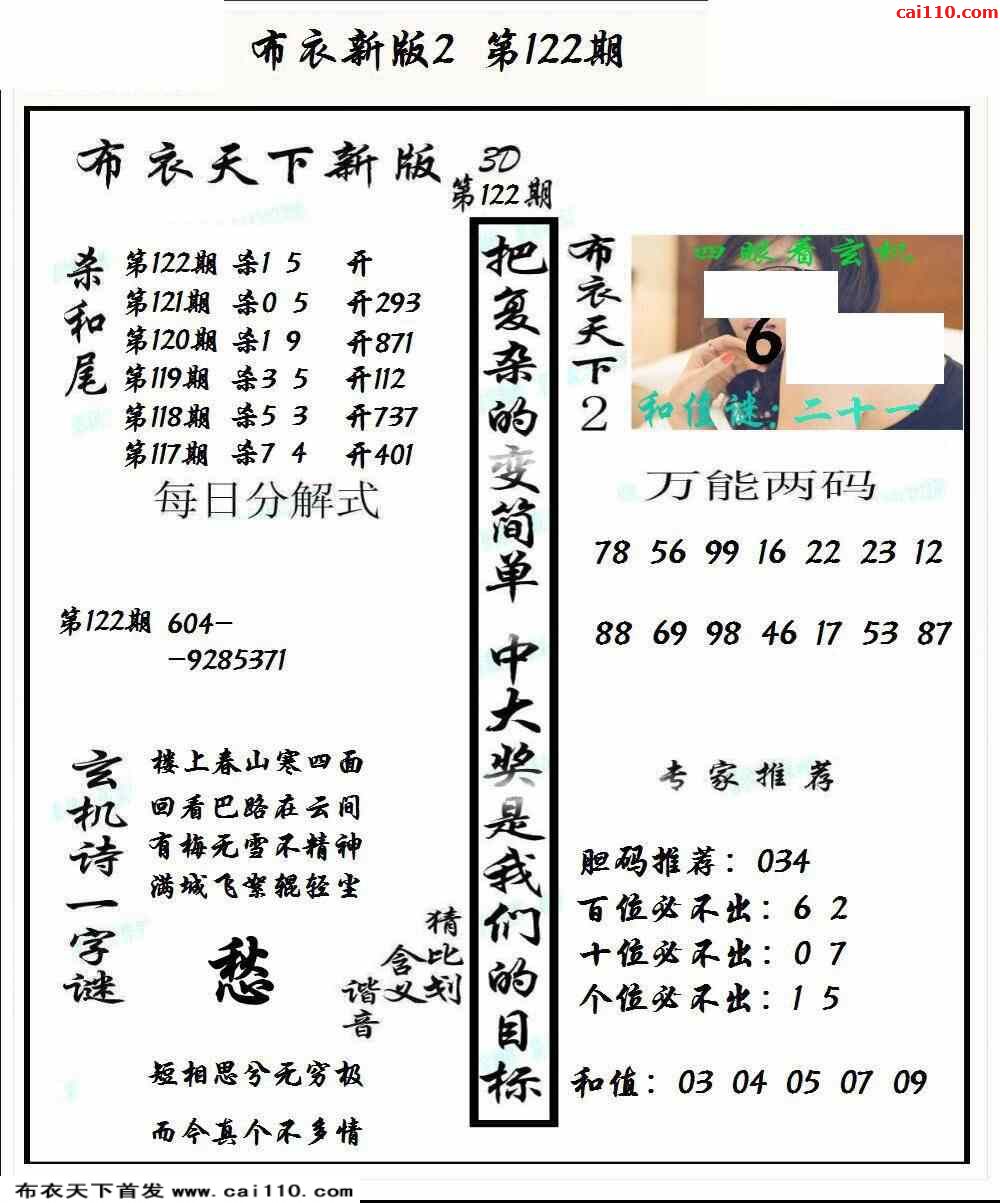 cai110.com
布衣新版2 第122期
布衣天下新版 3D
第122期
杀和尾
第122期 杀1 5 开
第121期 杀0 5 开293
第120期 杀1 9 开871
第119期 杀3 5 开112
第118期 杀5 3 开737
第117期 杀7 4 开401
每日分解式
第122期 604-
-9285371
玄机诗一字谜
楼上春山寒四面
回看巴路在云间
有梅无雪不精神
满城飞絮辊轻尘
愁
猜比划
含义
谐音
短相思兮无穷极
而今真个不多情
把复杂的变简单 中大奖是我们的目标
布衣天下2
四眼看玄机
6
和值谜:二十一
万能两码
78 56 99 16 22 23 12
88 69 98 46 17 53 87
专家推荐
胆码推荐：034
百位必不出：6 2
十位必不出：0 7
个位必不出：1 5
和值：03 04 05 07 09
布衣天下首发 www.cai110.com